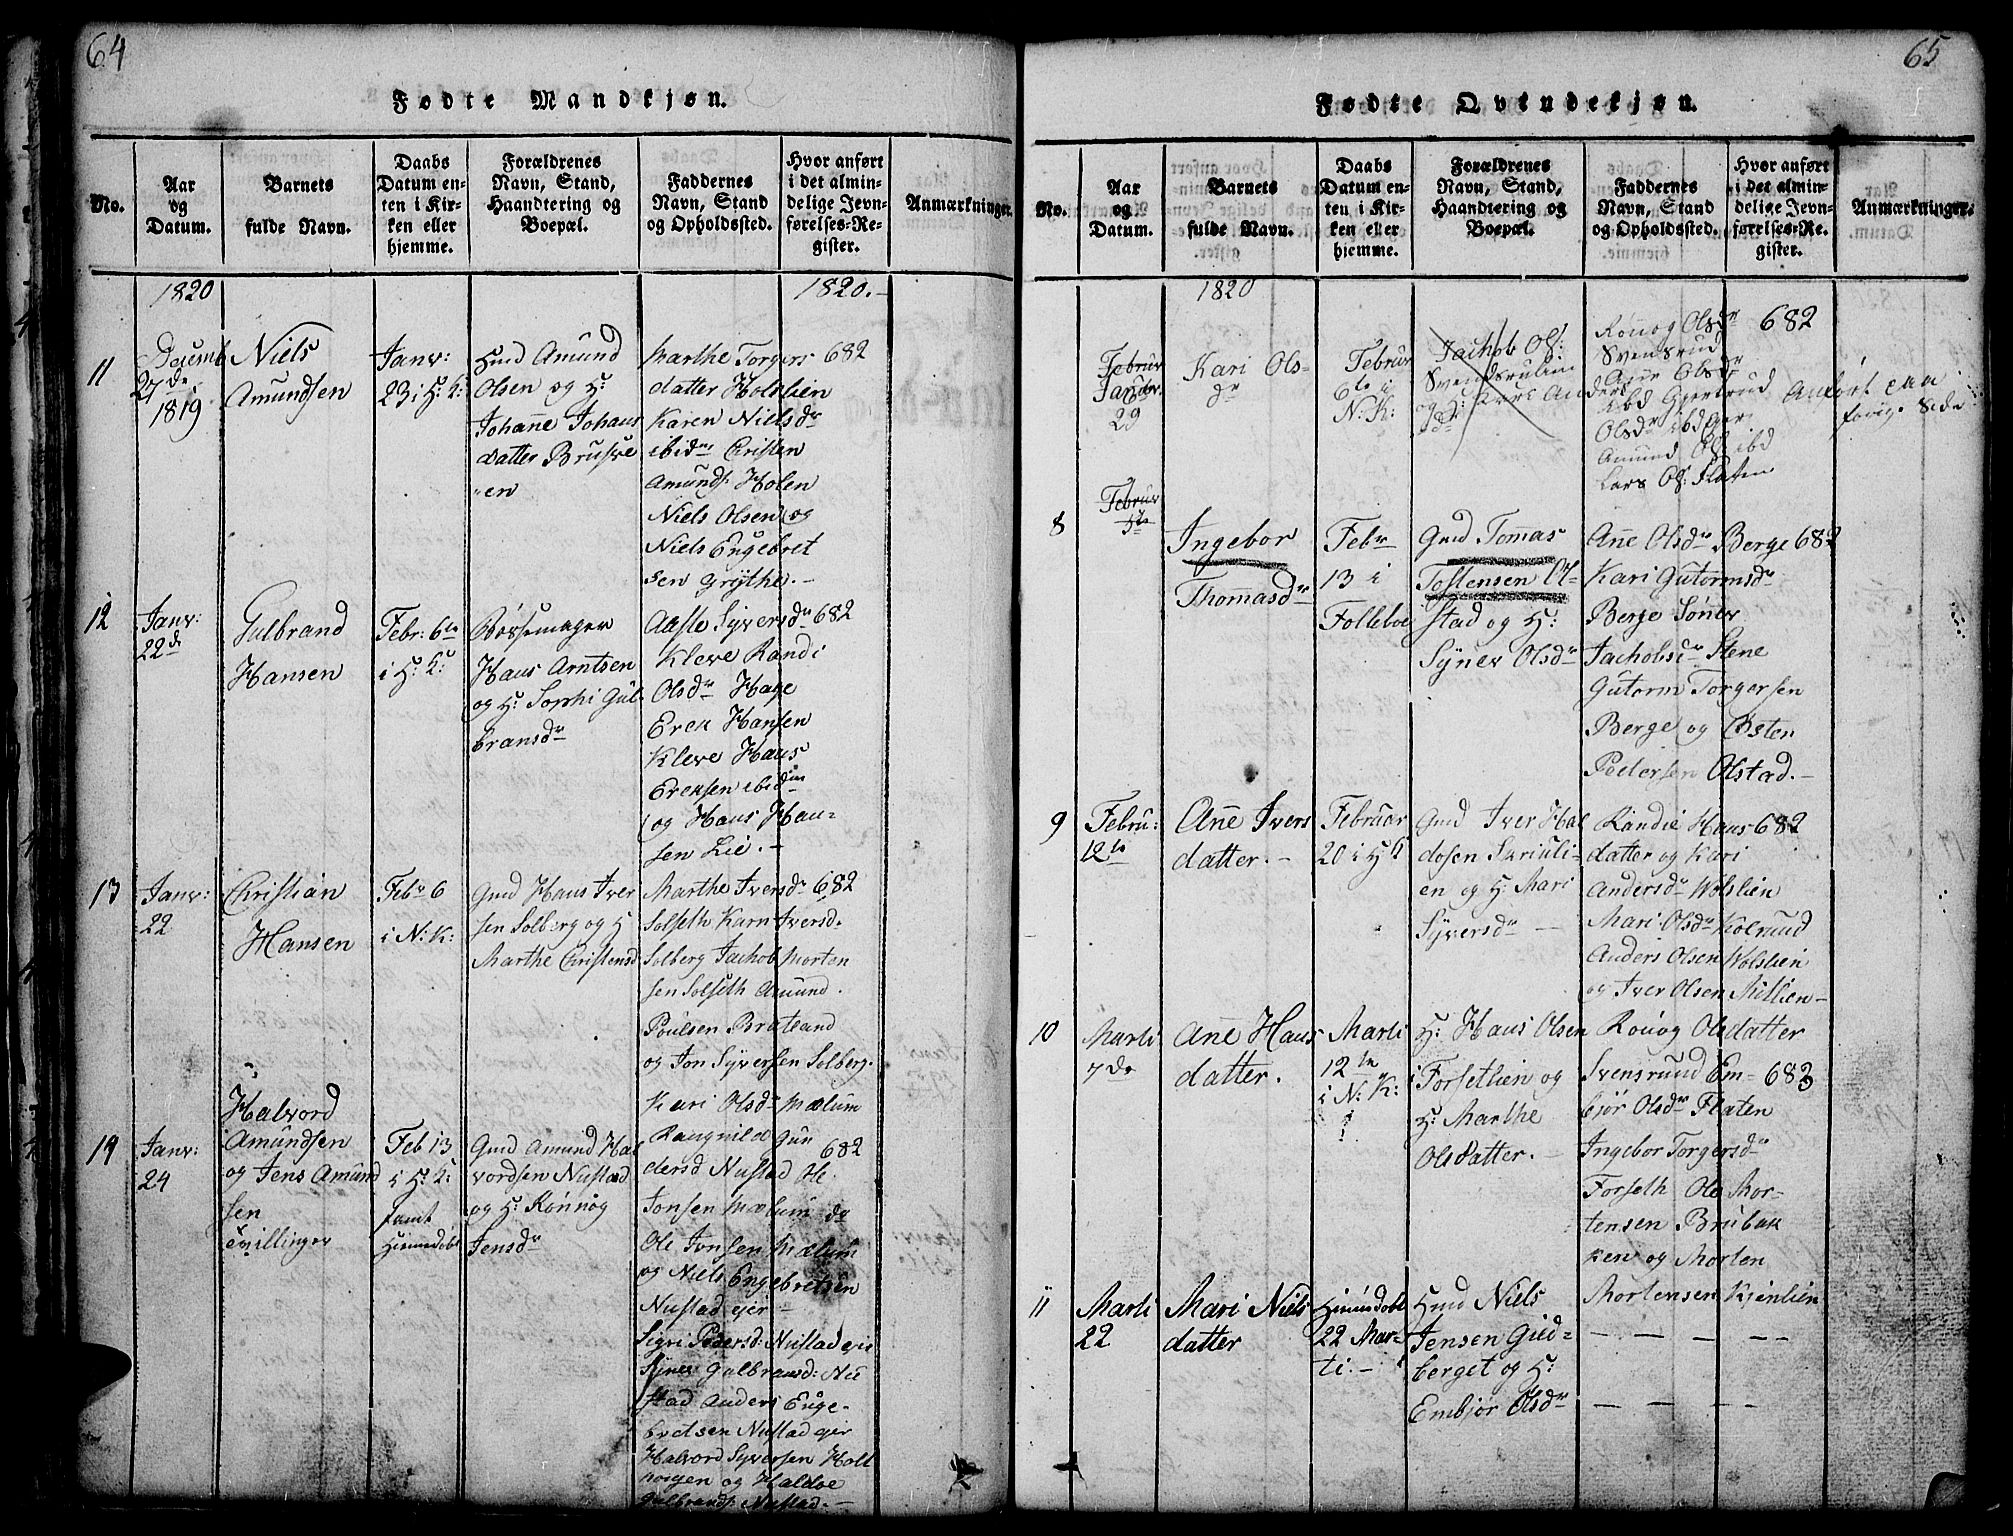 64
Fødte Mandkjøn.
No.
Aar
og
Datum.
Barnets
fulde Navn.
Daabs
Datum en-
ten i Kir-
ken eller
hjemme.
Forældrenes
Navn, Stand,
Haandtering og
Boepæl.
Faddernes
Navn, Stand
og Opholdssted.
Hvor anført
i det almin-
delige Jevn-
førelses-Re-
gister.
Anmærkninger.
1820
1820.-
11
Decemb
27de
1819
Niels
Amundsen
Janv:
23 i H: K:
Hmd Amund
Olsen og H:
Johanne Johans
datter Brusve
"en
Marthe Torgers
datter Holslien
Karen Nielsdr
ibidm Christen
Amunds: Holen
Niels Olsen og
Niels Engebret
sen Grythe.-
682
12
Janv:
22de
Gulbrand
Hansen
Febr: 6te
i H: K:
Bøssemager
Hans Arntsen
og H: Sophi Gul
bransdr
Aaste Syversdr
Kleve Randi
Olsdr Hage
Eren Hansen
Kleve Hans
Erensen ibidm
og Hans Han-
sen Lie.-
682
13
Janv:
22
Christian
Hansen
Febr 6
i N: K:
Gmd Hans Iver
sen Solberg og H
Marthe Christensd
Marthe Iversdr
Solseth Karn Iversd.
Solberg Jachob Morten
sen Solseth Amund.
Poulsen Brateand
og Jon Syversen Solberg.
682
14
Janv:
24
Halvord
Amundsen
og Jens Amund
sen
tvillinger
Feb 13
i H: K:
samt
Hiemedøbt
Gmd Amund Hal
vordsen Nustad
og H: Rønnog
Jensdr
Kari Olsdr Mælum
Rangnild Gun
dersd Nustad Ole
Jonsen Mælum
Ole Jonsen Mælum
og Niels Engebretsen
Nustad ejer
Sigri Pedersd: Nustad eie
Synev Gulbransd: Nu
stad Anders Enge-
bretsen Nustad ejer
Halvord Syversen Holt
hougen og Haldoe
Gulbrands: Nustad.-
682
65
Fødte Qvindekjøn.
No.
Aar
og
Datum.
Barnets
fulde Navn.
Daabs
Datum en-
ten i Kir-
ken eller
hjemme.
Forældrenes
Navn, Stand,
Haandtering og
Boepæl.
Faddernes
Navn, Stand
og Opholdssted.
Hvor anført
i det almin-
delige Jevn-
førelses-Re-
gister.
Anmærkninger.
1820
Februr
Januar
29
Kari Ols-
dr
Februr
6te i
N: K:
Jachob Ols:
Svendsrulien
og H: Kari Anders
dr
Rønog Olsdr
Svensrud
Ane Olsdr
ibd Gjertrud
Olsdr ibd ejer
Amund Ols ibd
Lars Ols: Flaten
682
Anført paa
forige Side
8
Februr
5te
Ingebor
Thomasdr
Febr
13 i
Folleboe
Gmd Tomas
Tostensen Ol-
stad og H:
Synev Olsdr
Ane Olsdr Berge
Kari Gutormsdr
Berge Sønev
Jachobsdr Stene
Gutorm Torgersen
Berge og Østen
Pedersen Olstad.-
682
9
Febru:
12te
Ane Ivers
datter.-
Februar
20 i H K
Gmd Iver Hal
dosen
en og H: Mari
Syversdr
Randie Hans
datter og Kari
Andersdr Wolslien
Mari Olsdr Kolrund
Anders Olsen Wolslien
og Iver Olsen Millien-
682
10
Marti
7de
Ane Hans
datter.
Marti
12te
i N: K:
H: Hans Olsen
Forsetlien og
H: Marthe
Olsdatter.-
Rønog Olsdatter
Svensrund Em-
bjør Olsdr Flaten
Ingebor Torgersdr
Forseth Ole Mor-
tensen Brubak
ken og Morten
Mortensen Kjenlien
682
11
Marti
22
Mari Niels
datter
Hiemdøbt
22 Mar-
ti.-
Hmd Niels
Jensen Gied-
berget og H:
Embjør Olsdr